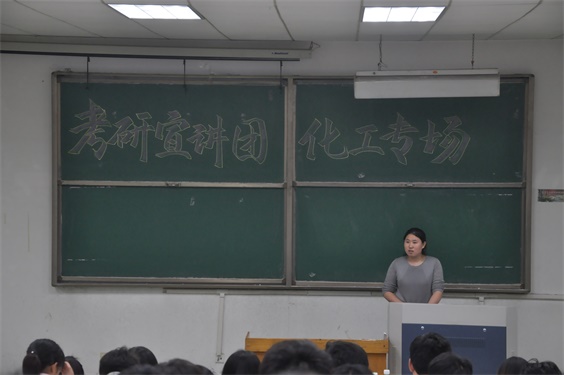 考研宣讲团 化工专场